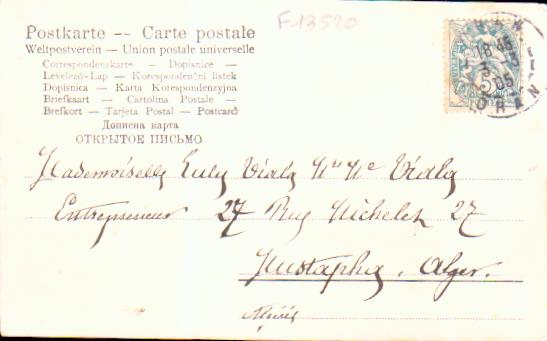 F 13520
Postkarte -- Carte postale
Weltpostverein — Union postale universelle
Correspondenzkarte — Dopisnice —
Levelező-Lap — Korespondenční listek
Dopisnica — Karta Korespondenzyjna
Briefkaart — Cartolina Postale —
Brefkort — Tarjeta Postal — Postcard
Дописна карта
ОТКРЫТОЕ ПИСЬМО
18 45
3
05
ORAN
Mademoiselle Luly Vidal
Entrepreneur 27 Rue Michelet 27
Mustapha. Alger.
Algérie